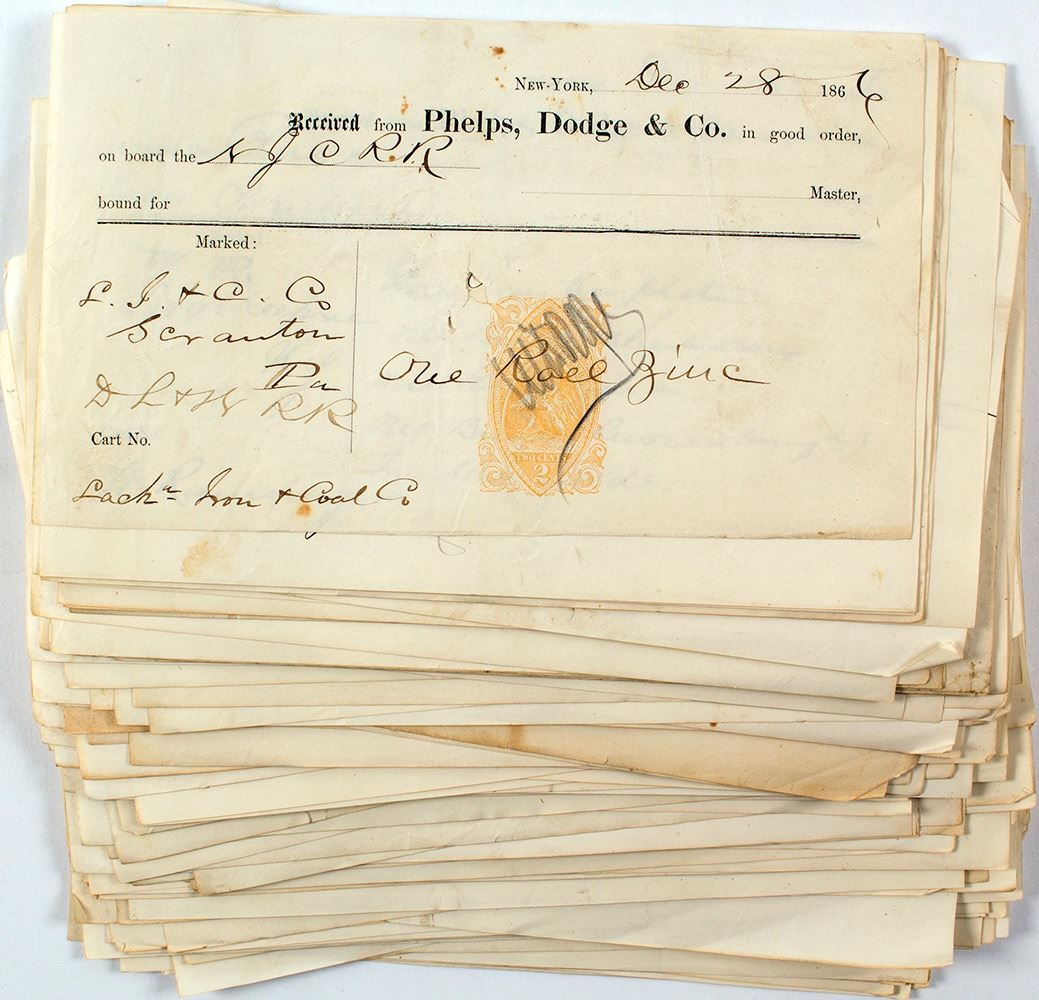 New-York, Dec 28 1866
Received from Phelps, Dodge & Co. in good order,
on board the N J C R.R.
Master,
bound for
Marked:
L. I. & C. Co
Scranton
Pa
D L & W RR
One Roll Zinc
TWO CENTS
2
Cart No.
Lacka Iron & Coal Co